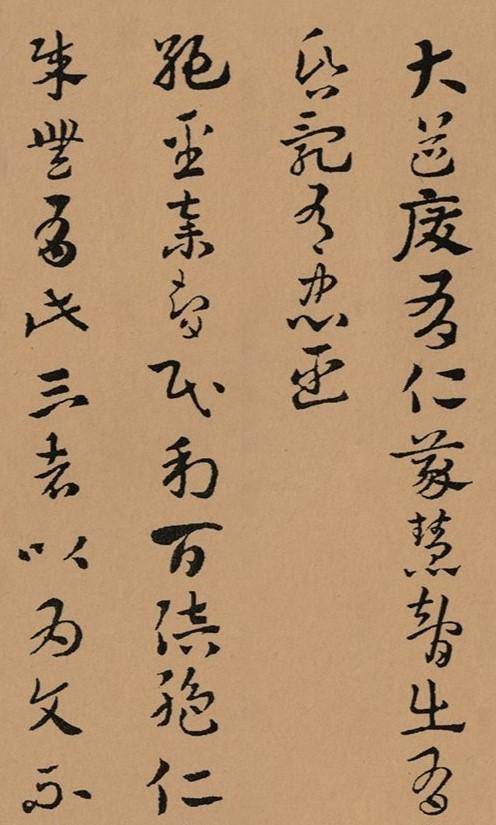 大道廢有仁義慧智出有
昏亂有忠臣
絕聖棄智民利百倍絕仁
此三者以為文不